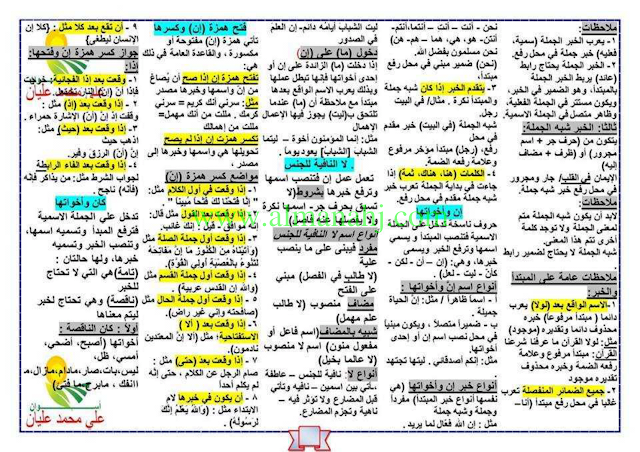 ملاحظات:
١- يعرب الخبر الجملة (اسمية،
فعلية) خبر الجملة في محل رفع.
٢- خبر الجملة يحتاج رابط
(عائد) يربط الخبر الجملة
بالمبتدأ، وهو الضمير في الخبر،
ويكون مستتر في الجملة الفعلية،
وظاهر متصل في الجملة الاسمية.
ثالثا: الخبر شبه الجملة:
يتكون من (حرف جر + اسم
مجرور) أو (ظرف + مضاف
إليه)
الإيمان في القلب/ جار ومجرور
في محل رفع خبر شبه جملة.
ملاحظات:
لابد أن يكون شبه الجملة متم
لمعنى الجملة، ولا توجد كلمة
أخرى تتم هذا المعنى.
ملاحظات عامة على المبتدأ
والخبر:
١-الاسم الواقع بعد (لولا) يعرب
دائما ( مبتدأ مرفوع) خبره
محذوف دائما وتقديره (موجود)
مثل: لولا القرآن ما عرفنا شرعنا
القرآن: مبتدأ مرفوع وعلامة
رفعه الضمة وخبره محذوف
تقديره موجود
٢- جميع الضمائر المنفصلة تعرب
غالبا في محل رفع مبتدأ (أنا–
نحن - أنت – أنتِ – أنتما،أنتم-
أنتن- هو، هي، هما – هم- هن)
نحن مسلمون بفضل الله.
(نحن) ضمير مبني في محل رفع
مبتدأ،
٣- يتقدم الخبر إذا كان شبه جملة
والمبتدأ نكرة . مثال/ في البيت
رجل،
شبه الجملة (في البيت) خبر مقدم
في محل
رفع، (رجل) مبتدأ مؤخر مرفوع
وعلامة رفعه الضمة.
٤- الكلمات (هنا، هناك، ثمة) إذا
جاءت في بداية الجملة تعرب خبر
شبه جملة مقدم في محل رفع.
إن وأخواتها
حروف ناسخة تدخل على الجملة
الاسمية فتنصب المبتدأ و يسمى
اسمها وترفع الخبر ويسمى
خبرها، وهي: (إن – أن - لكن -
كأنّ – ليت - لعل).
أنواع اسم إنّ وأخواتها:
أ – اسماً ظاهراً / مثل: إنّ الحياة
جميلة .
ب – ضميراً متصلاً ، ويكون مبنيا
في محل نصب اسم إن أو إحدى
أخواتها.
مثل: إنكم أصدقائي . ليتها تجتهد
.
أنواع خبر إن وأخواتها (هي
نفسها أنواع خبر المبتدأ) مفرداً
وجملة وشبه جملة
مثل : إن الله فعّال لما يريد .
ليت الشباب أيامُه دائم- إن العلم
في الصدور
دخول (ما) على (إن)
إذا دخلت (ما) الزائدة على إن أو
إحدى أخواتها فإنها تبطل عملها
وبذلك يعرب الاسم الواقع بعدها
مبتدأ مع ملاحظة أن (ما) عندما
تلتحق ب(ليت) يجوز فيها الإعمال
الاهمال
مثل: إنما المؤمنون أخوة – ليتما
الشبابَ (الشبابُ) يعود يوما .
. لا النافية للجنس
تعمل عمل إن فتنصب اسمها
وترفع خبرها بشروط(لا
تسبق بحرف جر- اسمها نكرة
أنواع اسم لا النافية للجنس
مفرد فيبنى على ما ينصب
علية
(لا طالب في الفصل) مبني
على الفتح
مضاف منصوب (لا طالب
علم مهمل)
شبيه بالمضاف(اسم فاعل أو
مفعول منون) اسم لا منصوب
(لا عالما بخيل)
أنواع لا: نافية للجنس – عاطفة
–تأتي بين اسمين – نافية وتأتي
قبل المضارع ولا تؤثر فيه –
ناهية وتجزم المضارع.
فتح همزة (إن) وكسرها
تأتي همزة (إن) مفتوحة أو
مكسورة ، والقاعدة العامة في ذلك
هي:
تفتح همزة إن إذا صح أن يُصاغ
من إن واسمها وخبرها مصدر
مثل: سرني أنك كريم = سرني
كرمك . مللت من أنك مهمل=
مللت من إهمالك
تكسر همزت إن إذا لم يصح
تحويلها هي واسمها وخبرها إلى
مصدر ،
مواضع كسر همزة (إن)
١- إذا وقعت في أول الكلام (مثل:
" إنّا فتحنا لك فتحاً مبيناً "
٢- إذا وقعت بعد القول مثل قال:
إنه موافق . قيل : إنك غائب.
٣- إذا وقعت أول جملة الصلة مثل
(وآتيناه من الكنوز ما إن مفاتحه
لتنوء بالعصبة أولي القوة).
٤- إذا وقعت أول جملة القسم مثل
(والله إن القدس عربية) .
٥- إذا وقعت أول جملة الحال مثل
(صافحته وإني غير راض).
٦- إذا وقعت بعد ( ألا )
الاستفتاحية؛ مثل: (ألا إن المعتدين
نادمون)
٧- إذا وقعت بعد (حتى) مثل:
صام الرجل عن الكلام ، حتى إنّه
لم يكلم أحداً
٨ – أن يكون في خبرها لام
الابتداء مثل : (والله يعلم إنك
لرسوله).
٩ – أن تقع بعد كلا مثل : (كلا إن
الإنسان ليطغى)
جواز كسر همزة إن وفتحها:
إذا:
١- وقعت بعد إذا الفجائية: خرجت
فإذا أن (إن)
٢- وقعت بعد (إذ) مثل :
وقفت إذ أن (إن) الإشارة حمراء .
٣- وقعت بعد (حيث) مثل:
اذهب حيث
أنّ (إنّ) الرزق وفير.
٤- وقعت بعد الفاء الرابطة
لجواب الشرط مثل: من يذاكر فإنه
(فأنه) ناجح.
كان وأخواتها
تدخل على الجملة الاسمية
فترفع المبتدأ وتسميه اسمها
وتنصب الخبر وتسميه
خبرها، ولها حالتان :
(تامة) هي التي لا تحتاج
للخبر
(ناقصة) وهي تحتاج للخبر
ليتم معناها
أولاً : كان الناقصة :
أخواتها (أصبح، أضحى،
أمسى، ظل،
ليس،بات،صار،مادام،مازال،ما
انفك ، مابرح،ما فتئ)
علي محمد عليان
أ. علي محمد عليان
www.almanahj.com